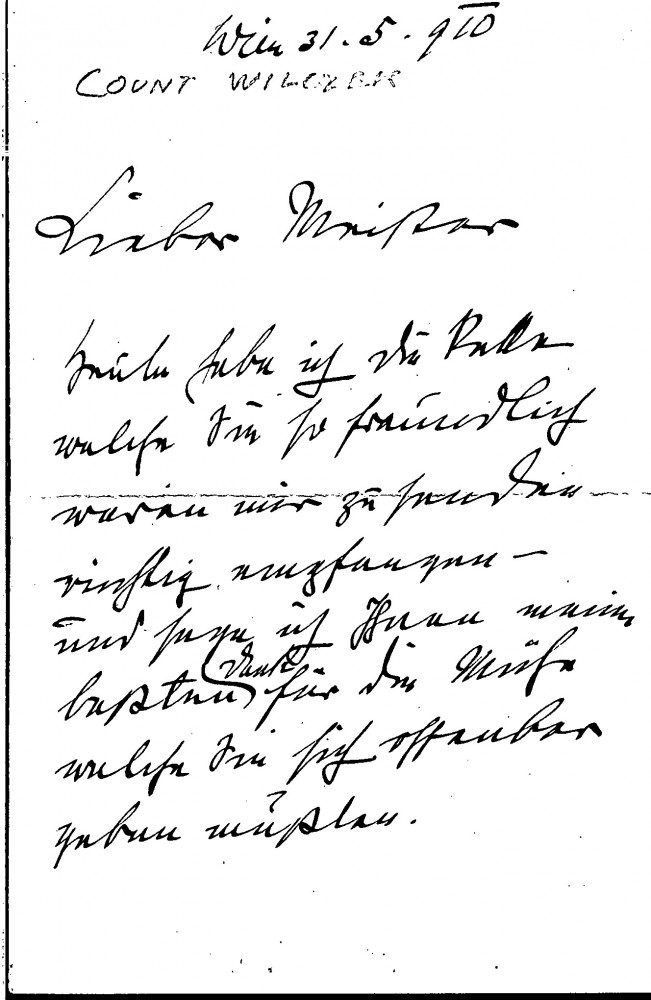 Wien 31.5.910
COUNT WILCZEK
Lieber Meister
heute habe ich die
welche Sie so freundlich
waren mir zu senden
richtig empfangen –
und sage ich Ihnen meinen
beßten Dank für die Mühe
welche Sie sich offenbar
geben mußten.